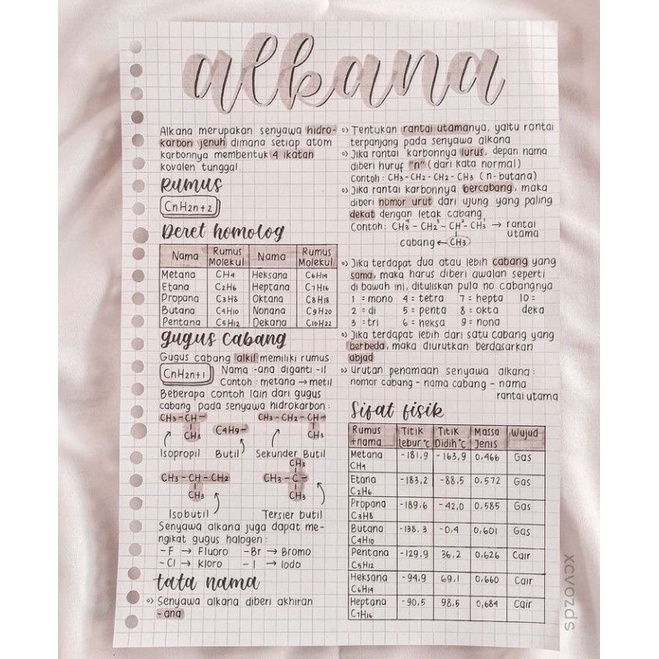 alkana
Alkana merupakan senyawa hidro-
karbon jenuh dimana setiap atom
karbonnya membentuk 4 ikatan
kovalen tunggal.
Rumus
CnH2n+2
Deret homolog
Nama Rumus Molekul Nama Rumus Molekul
Metana CH4 Heksana C6H14
Etana C2H6 Heptana C7H16
Propana C3H8 Oktana C8H18
Butana C4H10 Nonana C9H20
Pentana C5H12 Dekana C10H22
Gugus Cabang
Gugus cabang alkil memiliki rumus
CnH2n+1 Nama -ana diganti -il
Contoh : metana → metil
Beberapa contoh lain dari gugus
cabang pada senyawa hidrokarbon :
CH3-CH- C4H9- CH3-CH2-CH-
CH3 CH3
Isopropil Butil Sekunder Butil
CH3
CH3-CH-CH2 CH3-C-
CH3 CH3
Isobutil Tersier butil
Senyawa alkana juga dapat me-
ngikat gugus halogen :
-F → Fluoro -Br → Bromo
-Cl → Kloro -I → Iodo
tata nama
Senyawa alkana diberi akhiran
-ana
Tentukan rantai utamanya, yaitu rantai
terpanjang pada senyawa alkana
Jika rantai karbonnya lurus, depan nama
diberi huruf "n" (dari kata normal)
Contoh : CH3-CH2-CH2-CH3 (n-butana)
Jika rantai karbonnya bercabang, maka
diberi nomor urut dari ujung yang paling
dekat dengan letak cabang
Contoh : CH3-CH2-CH-CH3 → rantai
utama
cabang ← CH3
Jika terdapat dua atau lebih cabang yang
sama, maka harus diberi awalan seperti
di bawah ini, dituliskan pula no cabangnya
1 = mono 4 = tetra 7 = hepta 10 =
2 = di 5 = penta 8 = okta deka
3 = tri 6 = heksa 9 = nona
Jika terdapat lebih dari satu cabang yang
berbeda, maka diurutkan berdasarkan
abjad
Urutan penamaan senyawa alkana :
nomor cabang - nama cabang - nama
rantai utama
Sifat fisik
Rumus +nama Titik lebur °C Titik Didih °C Massa Jenis Wujud
Metana CH4 -181,9 -163,9 0,466 Gas
Etana C2H6 -183,2 -88,5 0,572 Gas
Propana C3H8 -189,6 -42,0 0,585 Gas
Butana C4H10 -138,3 -0,4 0,601 Gas
Pentana C5H12 -129,9 36,2 0,626 Cair
Heksana C6H14 -94,9 69,1 0,660 Cair
Heptana C7H16 -90,5 98,5 0,684 Cair